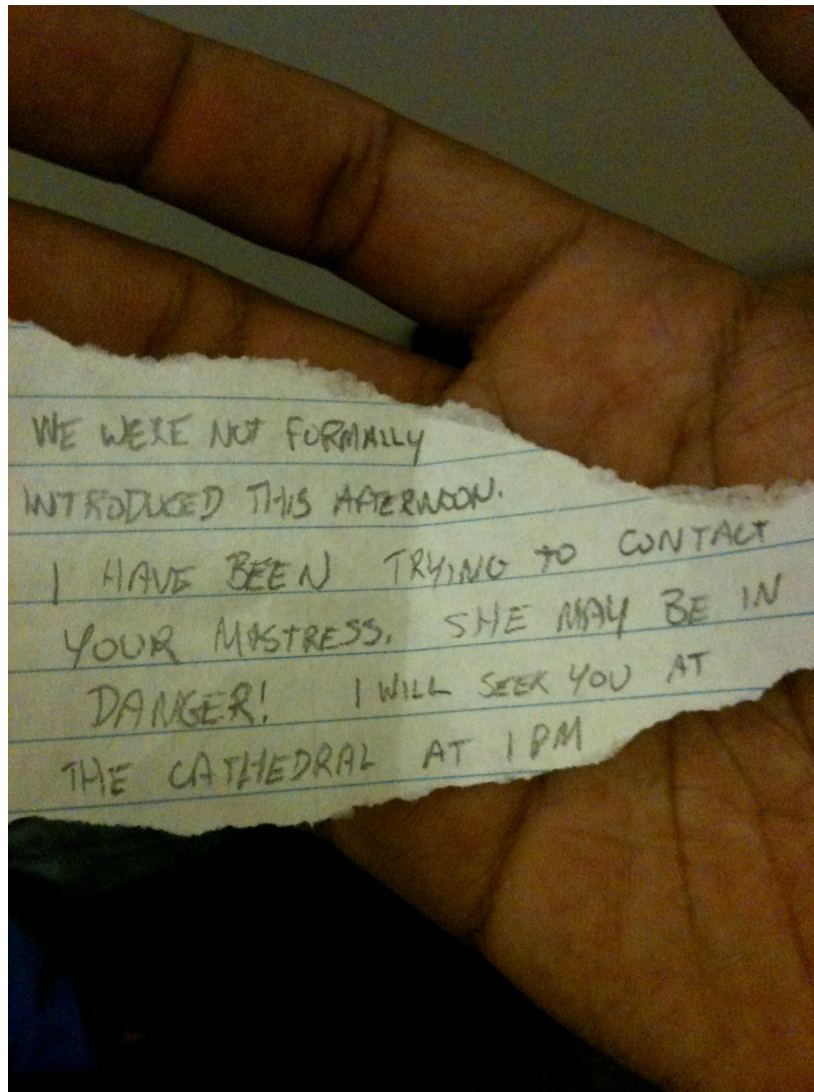 WE WERE NOT FORMALLY
INTRODUCED THIS AFTERNOON.
I HAVE BEEN TRYING TO CONTACT
YOUR MISTRESS. SHE MAY BE IN
DANGER! I WILL SEEK YOU AT
THE CATHEDRAL AT 1 PM